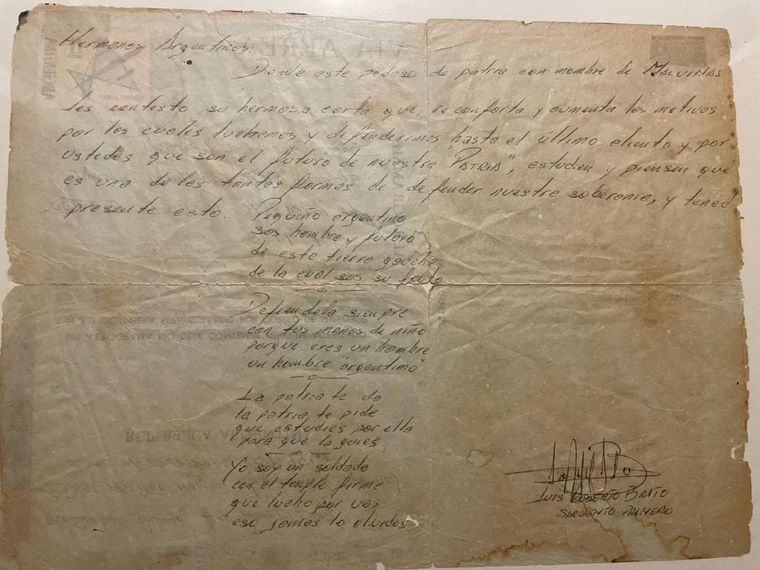 Hermanos Argentinos:
Desde este pedazo de patria con nombre de MALVINAS
les contesto su hermosa carta que, reconforta y aumenta los motivos
por los cuales luchamos y defenderemos hasta el último aliento y por
ustedes que son el futuro de nuestra "PATRIA", estudien y piensen que
es una de las tantas formas de defender nuestra soberania, y tened
presente esto.
Pequeño argentino
sos hombre y futuro
de esta tierra gaucha
de la cual sos su fruto
Defiendela siempre
con tus manos de niño
porque eres un hombre
un hombre "argentino"
La patria te da
la patria, te pide
que estudies por ella
para que la guies
Yo soy un soldado
con el temple firme
que lucho por vos
eso jamas lo olvides
LUIS ROBERTO BRITO
SARGENTO PRIMERO
VIA AEREA
ARGENTINA
REPUBLICA